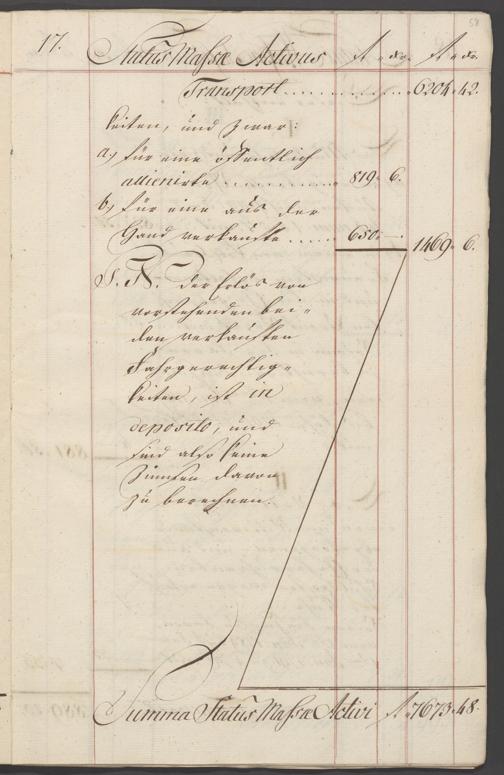 58
17. Status Massæ Activus f x dr. f x dr.
Transport . . . . . . 6204. 42.
keiten, und zwar:
a.) für eine öffentlich
allienirte . . . . . . 819. 6.
b.) für eine aus der
Hand verkaufte . . . . . 650. — 1469. 6.
P. N. der Erlös von
vorstehenden bei-
den verkauften
Fahrgerechtig-
keiten, ist in
deposito, und
sind also keine
Zinnsen davon
zu berechnen.
Summa Status Massæ Activi f 7673. 48.